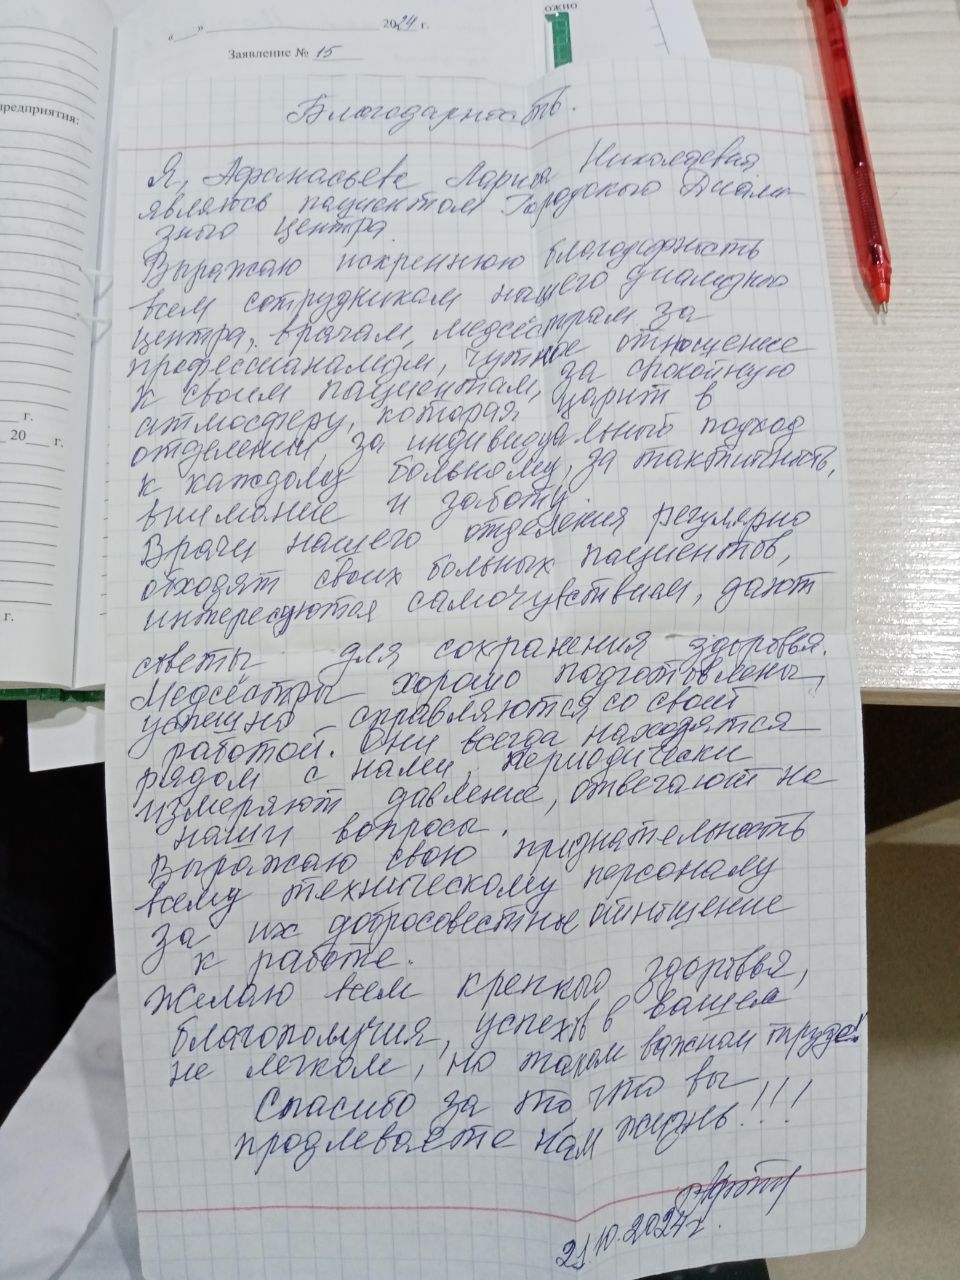 ОЖНО
«___» ____________ 2024 г.
Заявление № 15
предприятия:
г.
20___ г.
г.
Благодарность.
Я, Афанасьева Лариса Николаевна,
являюсь пациентом Городского Диали-
зного центра.
Выражаю искреннюю благодарность
всем сотрудникам нашего диализного
центра, врачам, медсёстрам за
профессианализм, чуткое отношение
к своим пациентам, за спокойную
атмосферу, которая царит в
отделении, за индивидуальный подход
к каждому больному, за тактичность,
внимание и заботу.
Врачи нашего отделения регулярно
обходят своих больных пациентов,
интересуются самочувствием, дают
советы для сохранения здоровья.
Медсёстры хорошо подготовлены,
успешно справляются со своей
работой. Они всегда находятся
рядом с нами, периодически
измеряют давление, отвечают на
наши вопросы.
Выражаю свою признательность
всему техническому персоналу
за их добросовестное отношение
к работе.
Желаю всем крепкого здоровья,
благополучия, успехов в вашем
не легком, но таком важном труде!
Спасибо за то, что вы
продлеваете нам жизнь!!!
21.10.2024г.